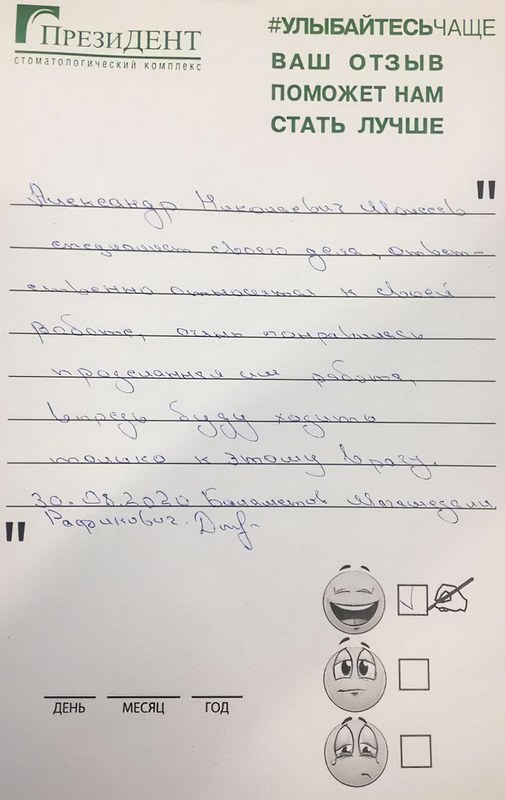 ПрезиДЕНТ
СТОМАТОЛОГИЧЕСКИЙ КОМПЛЕКС
#УЛЫБАЙТЕСЬЧАЩЕ
ВАШ ОТЗЫВ
ПОМОЖЕТ НАМ
СТАТЬ ЛУЧШЕ
"
Александр Николаевич Моисеев
специалист своего дела, ответ-
ственно относится к своей
работе, очень понравилась
проделанная им работа,
впредь буду ходить
только к этому врачу.
30.08.2020
Рафикович.
"
ДЕНЬ МЕСЯЦ ГОД